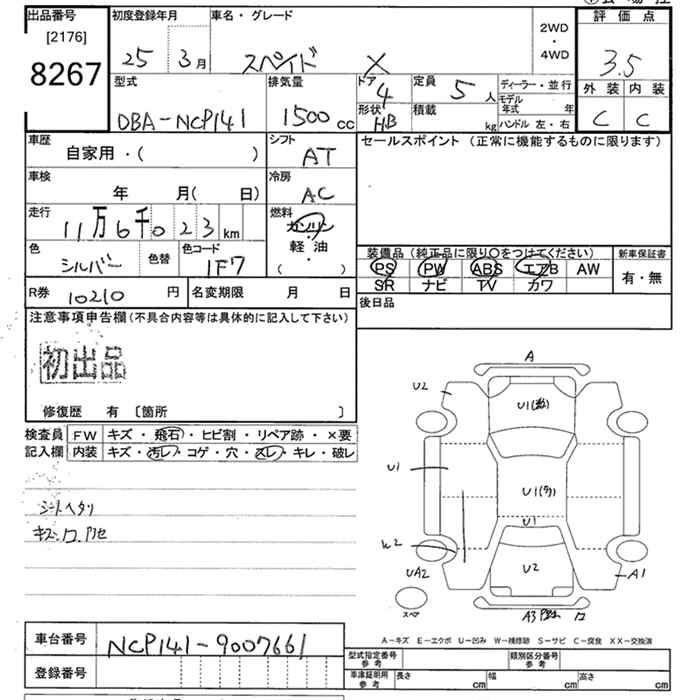 出品番号
[2176]
8267
初度登録年月
25 3月
車名・グレード
スペイド X
2WD
・
4WD
評価点
3.5
外装 内装
C C
型式
DBA-NCP141
排気量
1500 cc
ドア
4
形状
HB
定員
5人
積載
kg
ディーラー・並行
モデル年式 年
ハンドル 左・右
車歴
自家用・( )
シフト
AT
セールスポイント (正常に機能するものに限ります)
車検
年 月( 日)
冷房
AC
走行
11万6千023km
燃料
ガソリン
・
軽油
( )
色
シルバー
色替
色コード
1F7
装備品 (純正品に限り○をつけてください)
PS PW ABS エアB AW
SR ナビ TV カワ
新車保証書
有・無
R券 10210 円
名変期限 月 日
後日品
注意事項申告欄(不具合内容等は具体的に記入して下さい)
初出品
修復歴 有 〔箇所 〕
検査員
記入欄
FW キズ・飛石・ヒビ割・リペア跡・×要
内装 キズ・汚レ・コゲ・穴・スレ・キレ・破レ
シートヘタリ
A
U2
U1
U1
U1
U1
W2
U2
UA2
A1
スペア
A3
A－キズ E－エクボ U－凹み W－補修跡 S－サビ C－腐食 XX－交換済
車台番号
NCP141-9007661
登録番号
型式指定番号
参考
類別区分番号
参考
車庫証明用
参考
長さ cm
幅 cm
高さ cm